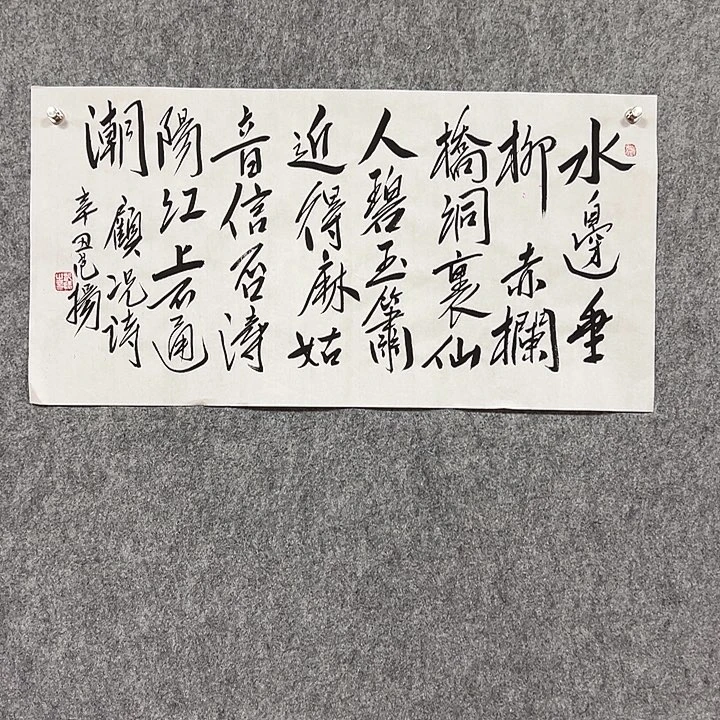 水邊垂
柳赤欄
橋洞裏仙
人碧玉簫
近得麻姑
音信否潯
陽江上不通
潮 顧况诗
辛丑揚